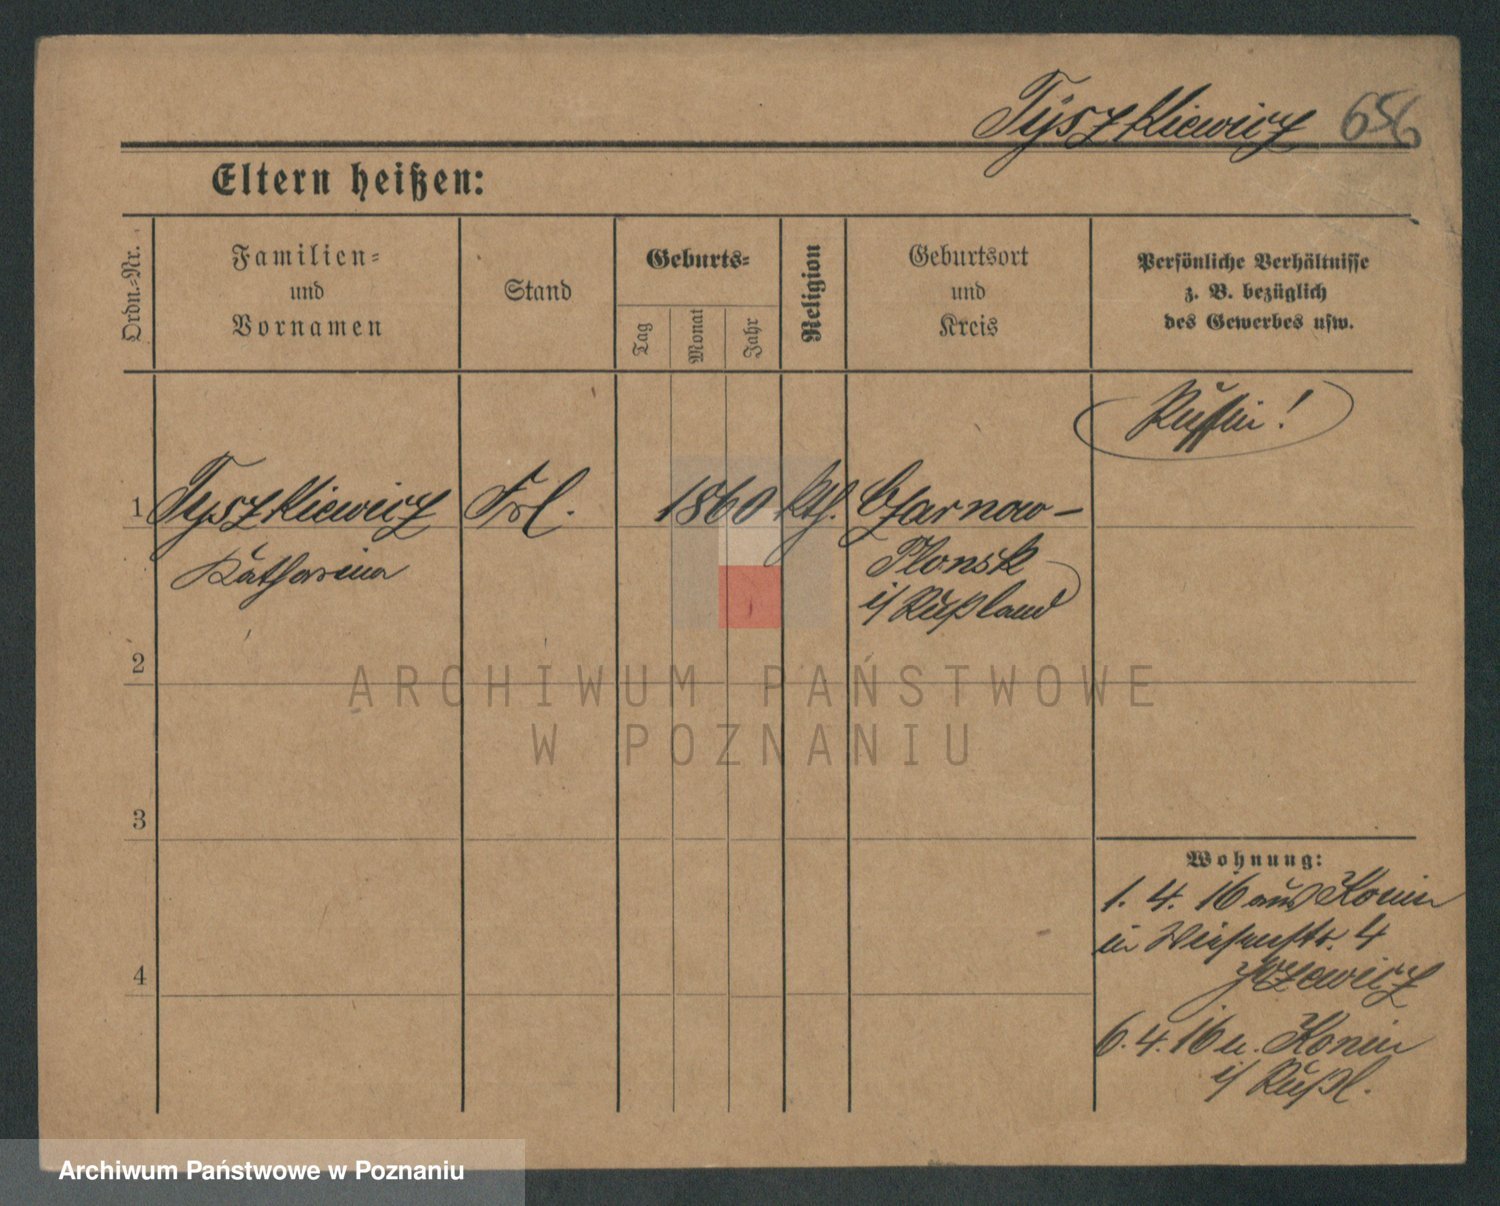 Tyszkiewicz 656
Eltern heißen:
Ordn.-Nr.
Familien-
und
Vornamen
Stand
Geburts-
Tag
Monat
Jahr
Religion
Geburtsort
und
Kreis
Persönliche Verhältnisse
z. B. bezüglich
des Gewerbes usw.
Russin!
1 Tyszkiewicz Frl. 1860 kth. Czarnow-
Katharina Plonsk
i/ Rußland
2
3
4
Wohnung:
1. 4. 16 aus Konin
in Wiesenstr. 4
Jozewicz
6. 4. 16 n. Konin
i/ Rußl.
ARCHIWUM PAŃSTWOWE
W POZNANIU
Archiwum Państwowe w Poznaniu